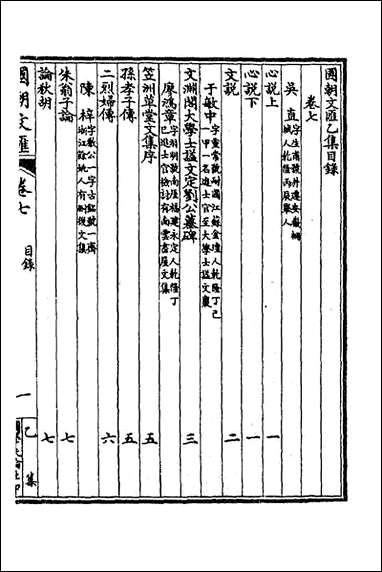 國朝文匯乙集目錄
卷七
吳直 字生甫號井遷安徽桐城人乾隆丙辰舉人
心説上 一
心説下 一
文説 二
于敏中 字重常號耐圃江蘇金壇人乾隆丁巳一甲一名進士官至大學士謚文襄
文淵閣大學士謚文定劉公墓碑 三
廖鴻章 字羽明號南厓福建永定人乾隆丁巳進士官檢討有南雲書屋文集
笠洲草堂文集序 五
孫孝子傳 五
二烈婦傳 六
陳梓 字敷公一字古銘號一齋浙江餘姚人有刪後文集
朱翁子論 七
論秋胡 七
國朝文匯 卷七 目錄 一 乙集